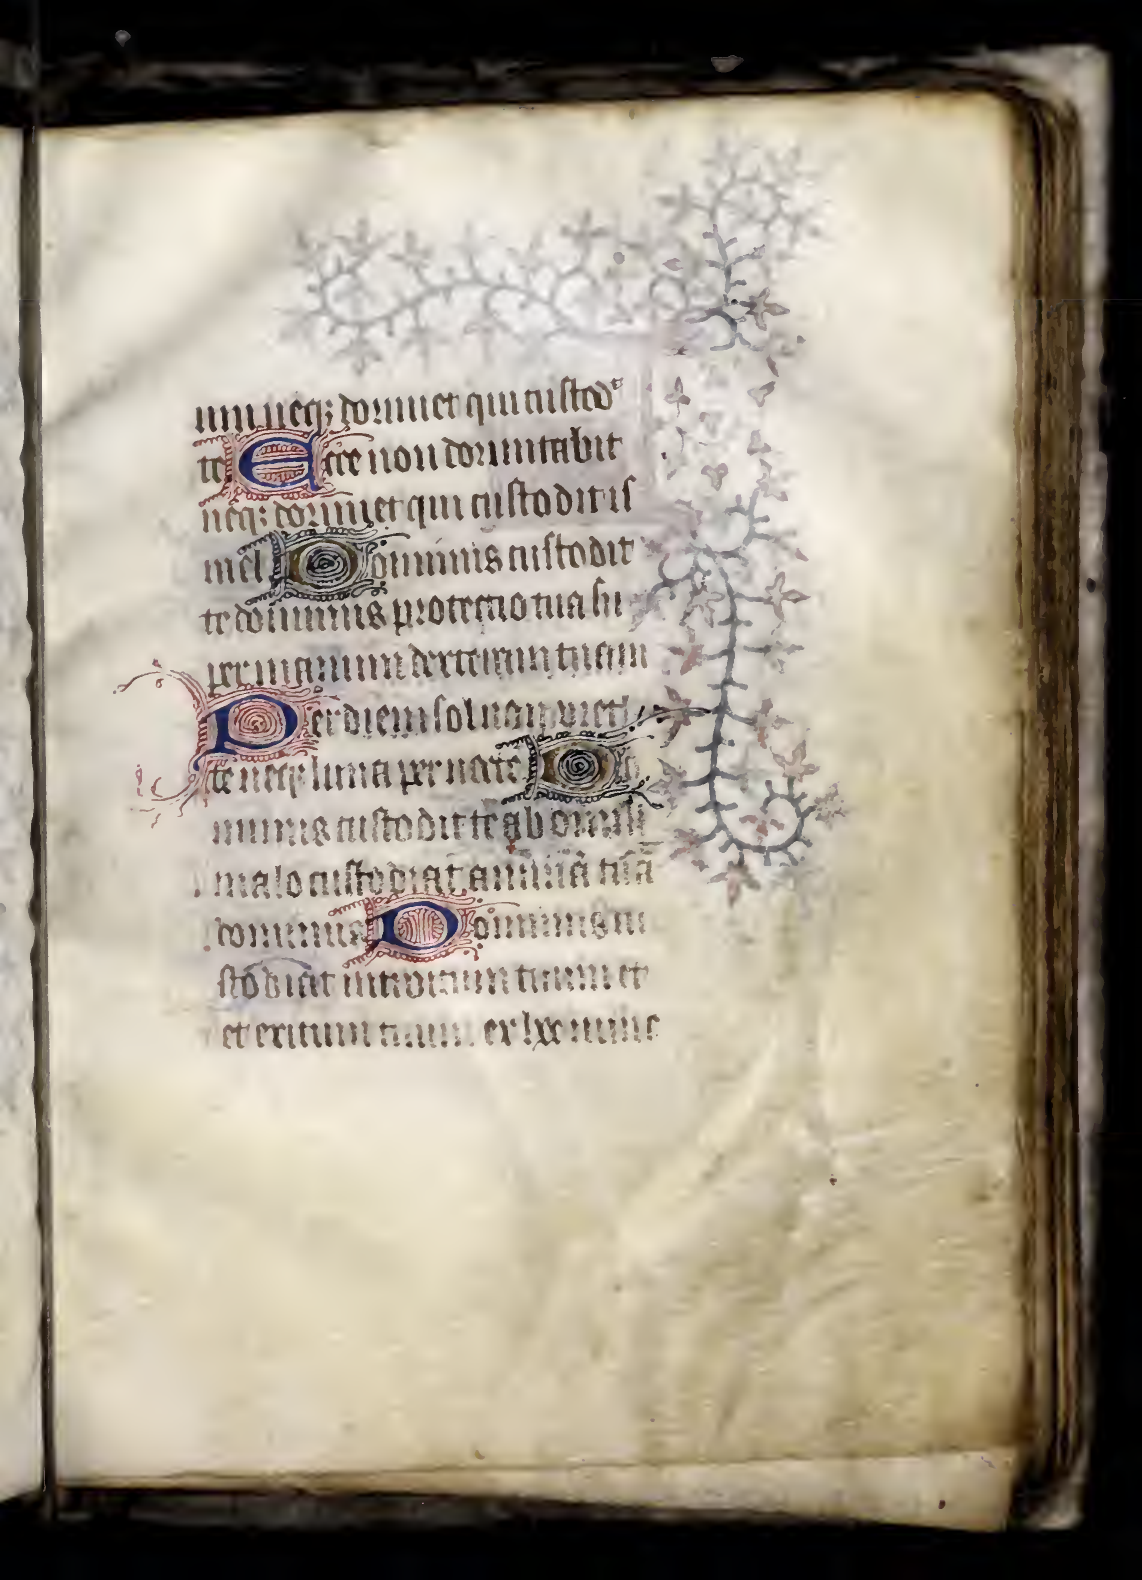 um neq; dormiet qui custod't
te Ecce non dormitabit
neq; dormiet qui custodit is
rael Dominus custodit
te dominus protectio tua su
per manum dexteram tuam
Per diem sol non uret
te neq; luna per noctē Do
minus custodit te ab omni
malo custodiat animā tuā
dominus Dominus cu
stodiat introitum tuum et
et exitum tuum ex hoc nunc